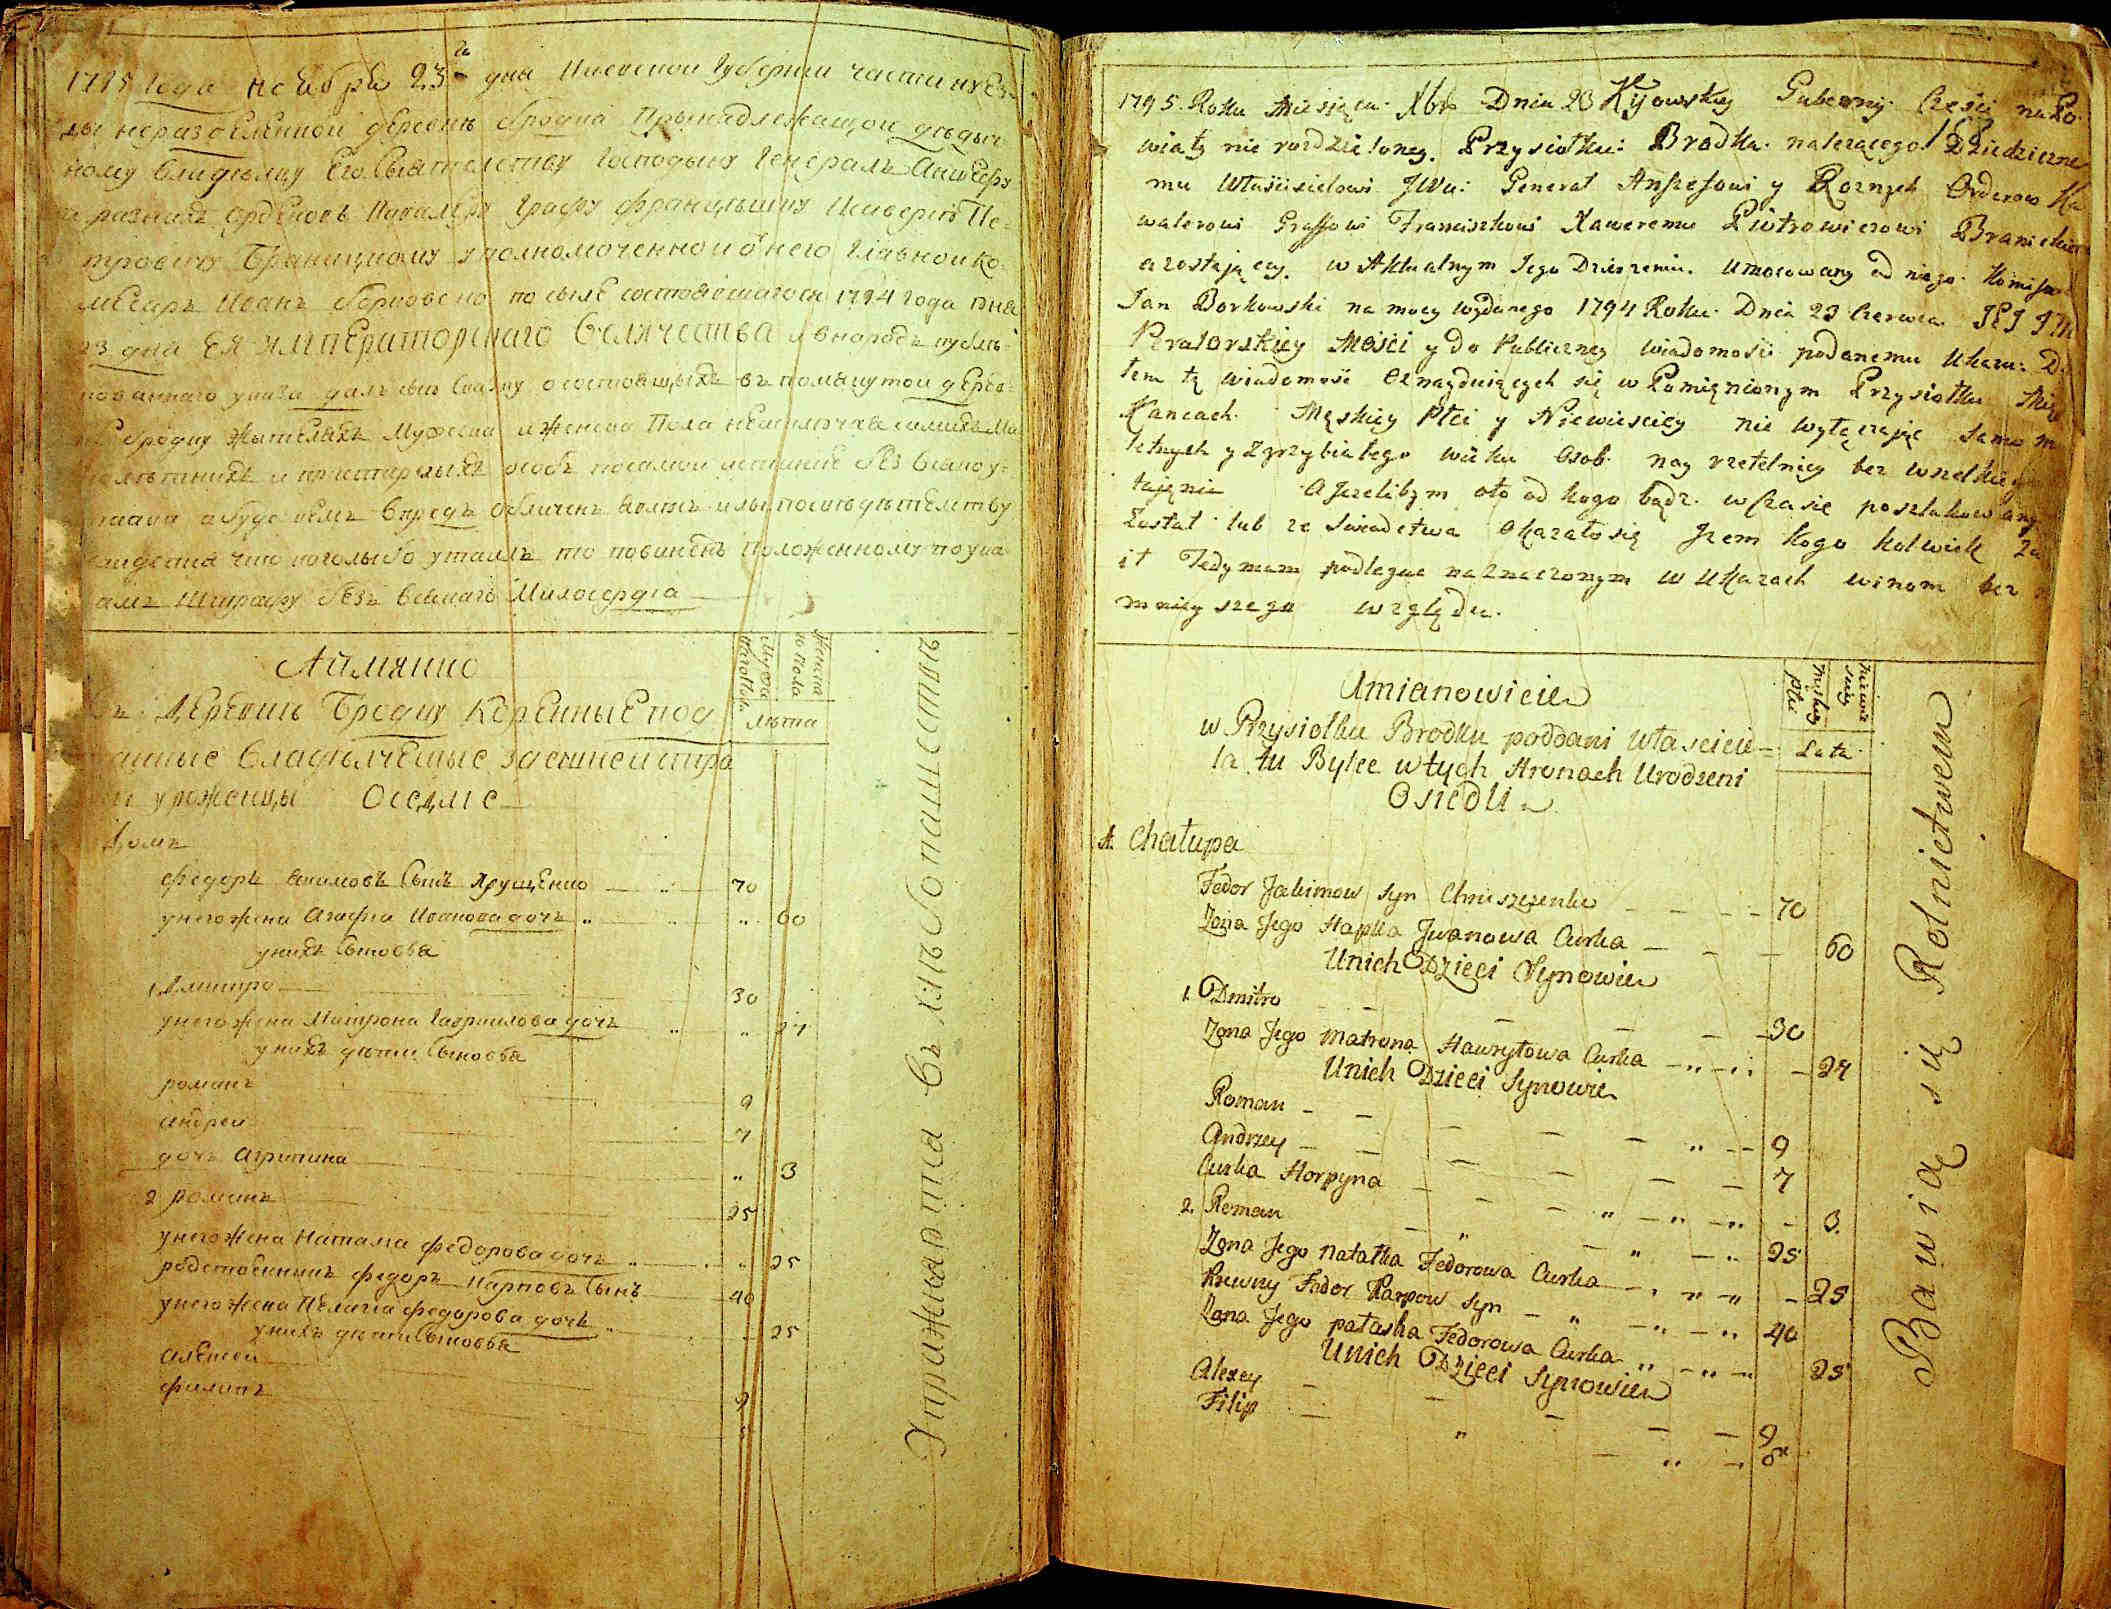 1795 года ноября 23 дня Киевской Губернии части на уез-
ды неразделенной деревни Бродка Принадлежащой дедыч
ному владельцу Его Сиятелству Господыну Генералъ Аншефу
и разныхъ Орденовъ Кавалеру Графу францышку Ксаверию Пе-
тровичу Браницкому уполномоченной от него Главной ко
мисаръ Иванъ Борковской по силе состоявшагося 1794 года июня
23 дня ЕЯ ИМПЕРАТОРСКАГО Величества и в народъ публи-
кованнаго указа далъ сию скаску о состоящыхъ въ помянутой дерев-
не Бродку жителяхъ Мужеска и женска Пола не выключая самыхъ Ма
лолетныхъ и престарелыхъ особъ по самой истинне без всякой у-
тайки а буде кемъ впредь обличенъ
что кого либо утаилъ то повиненъ положенному по ука
амъ Штрафу безъ всякаго Милосердия
Аймянно
Въ Деревни Бродку Коренные под
данные владелческые здешней стра
ни уроженцы Оседлие
Мужеска пола
Женска го пола
лета
Домъ
федоръ Якимовъ сынъ Хрущенко 70
у него жена Агафия Иванова дочь 60
у нихъ сыновья
1 Дмитро 30
у него жена Матрона Гаврилова дочь 27
у нихъ дети сыновья
романъ 9
андрей 7
дочь Агрипина 3
2 романъ 25
у него жена Наталия федорова дочь 25
родственникъ федоръ Карповъ сынъ 40
у него жена Пелагия федорова дочь 25
у нихъ дети сыновья
Алексей 9
филипъ
Упражняютца въ хлебопашестве
1795. Roku Miesiąca Xbr Dnia 23 Kijowskiy Guberny Części na Po
wiaty nie rozdzieloney. Przysiołku: Brodku. należącego Dziedziczne
mu Właścicielowi JWu: Generał Anszefowi y Roznych Orderow Ka
walerowi Graffowi Franciszkowi Xaweremu Piotrowiczowi Branickiemu
a zostający w Aktualnym Jego Dzierzeniu. Umocowany od niego Komisarz
Jan Borkowski na mocy wydanego 1794 Roku. Dnia 23 Czerwca JEJ IM
Peratorskiey Mości y do Publiczney wiadomości podanemu Ukazu: D.
łem tę wiadomość Oznayduiących się w Pomięnionym Przysiołku Miesz
Kancach. Męskiey Płci y Niewiesciey nie wyłączaiąc Samo m
letnych y Zgrzybiałego wieku Osob nay rzetelniey bez wszelkiego
taięnia A Jeżelibym oto od kogo bądz. w Czasie poszlakowany
Został lub ze Swiadectwa Okazałosię Jzem Kogo kolwiek Za
ił Tedy mam podlegać naznaczonym w Ukazach winom bez n
mnieyszego względu.
Umianowicie
w Przysiołku Brodku poddani własciciе=
la tu Bylce w tych Stronach Urodzeni
Osiedli
Męskiey Płci
Lata
1. Chałupa
Fedor Jakimow Syn Chruszczenko 70
Zona Jego Hapka Jwanowa Curka 60
Unich Dzieci Synowie
1. Dmitro 30
Zona Jego Matruna Hawryłowa Curka 27
Unich Dzieci Synowie
Roman 9
Andrzey 7
Curka Horpyna 3
2. Roman 25
Zona Jego Natałka Fedorowa Curka 25
Krewny Fedor Karpow Syn 40
Zona Jego Pałaska Fedorowa Curka 25
Unich Dzieci Synowie
Alexey 9
Filip
Bawią się Rolnictwem